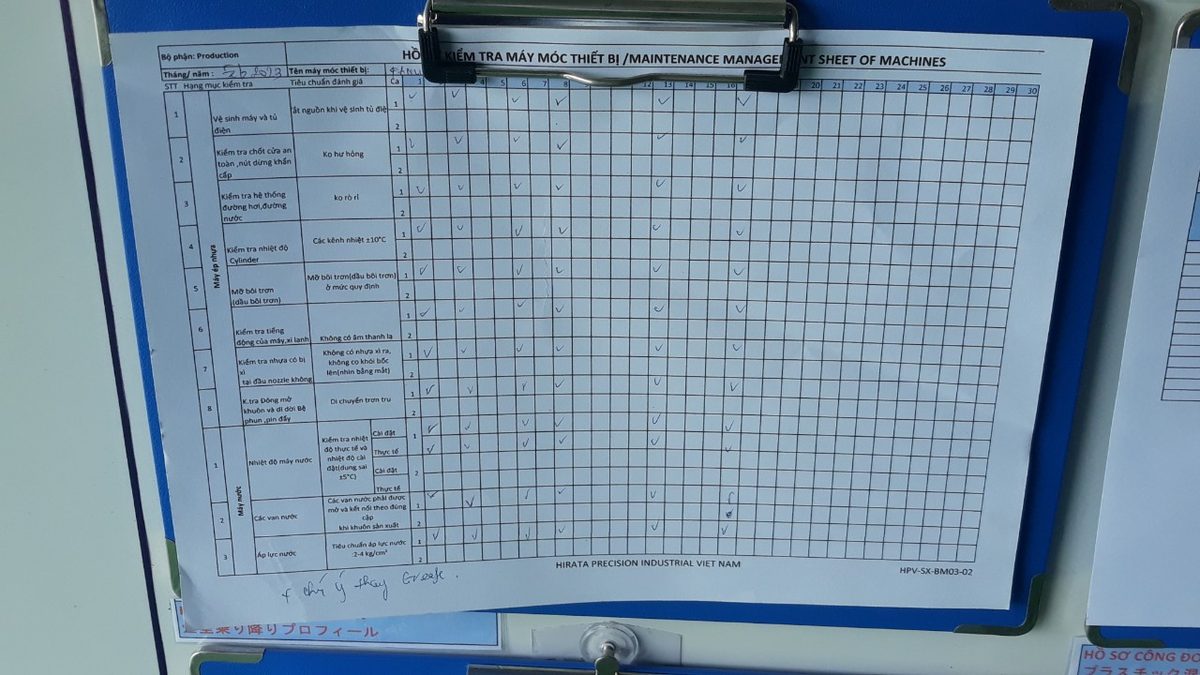 Bộ phận: Production
HỒ KIỂM TRA MÁY MÓC THIẾT BỊ /MAINTENANCE MANAGEMENT SHEET OF MACHINES
Tháng/ năm : 2023 Tên máy móc thiết bị:
STT Hạng mục kiểm tra Tiêu chuẩn đánh giá Ca 4 5 6 7 8 12 13 14 15 16 19 20 21 22 23 24 25 26 27 28 29 30
Máy ép nhựa
1 Vệ sinh máy và tủ điện ắt nguồn khi vệ sinh tủ điệ 1
2
2 Kiểm tra chốt cửa an toàn ,nút dừng khẩn cấp Ko hư hỏng 1
2
3 Kiểm tra hệ thống đường hơi,đường nước ko rò rỉ 1
2
4 Kiểm tra nhiệt độ Cylinder Các kênh nhiệt ±10°C 1
2
5 Mỡ bôi trơn (dầu bôi trơn) Mỡ bôi trơn(dầu bôi trơn) ở mức quy định 1
2
6 Kiểm tra tiếng động của máy,xi lanh Không có âm thanh lạ 1
2
7 Kiểm tra nhựa có bị xì tại đầu nozzle không Không có nhựa xì ra, không co khói bốc lên(nhìn bằng mắt) 1
2
8 K.tra Đóng mở khuôn và di dời Bệ phun ,pin đẩy Di chuyển trơn tru 1
2
Máy nước
1 Nhiệt độ máy nước Kiểm tra nhiệt độ thực tế và nhiệt độ cài đặt(dung sai ±5°C) Cài đặt 1
Thực tế
Cài đặt 2
Thực tế
2 Các van nước Các van nước phải được mở và kết nối theo đúng cặp khi khuôn sản xuất 1
2
3 Áp lực nước Tiêu chuẩn áp lực nước 2-4 kg/cm² 1
2
HIRATA PRECISION INDUSTRIAL VIET NAM
HPV-SX-BM03-02
chú ý thay
乗り降りプロフィール
HỒ SƠ CÔNG ĐO
プラスチック